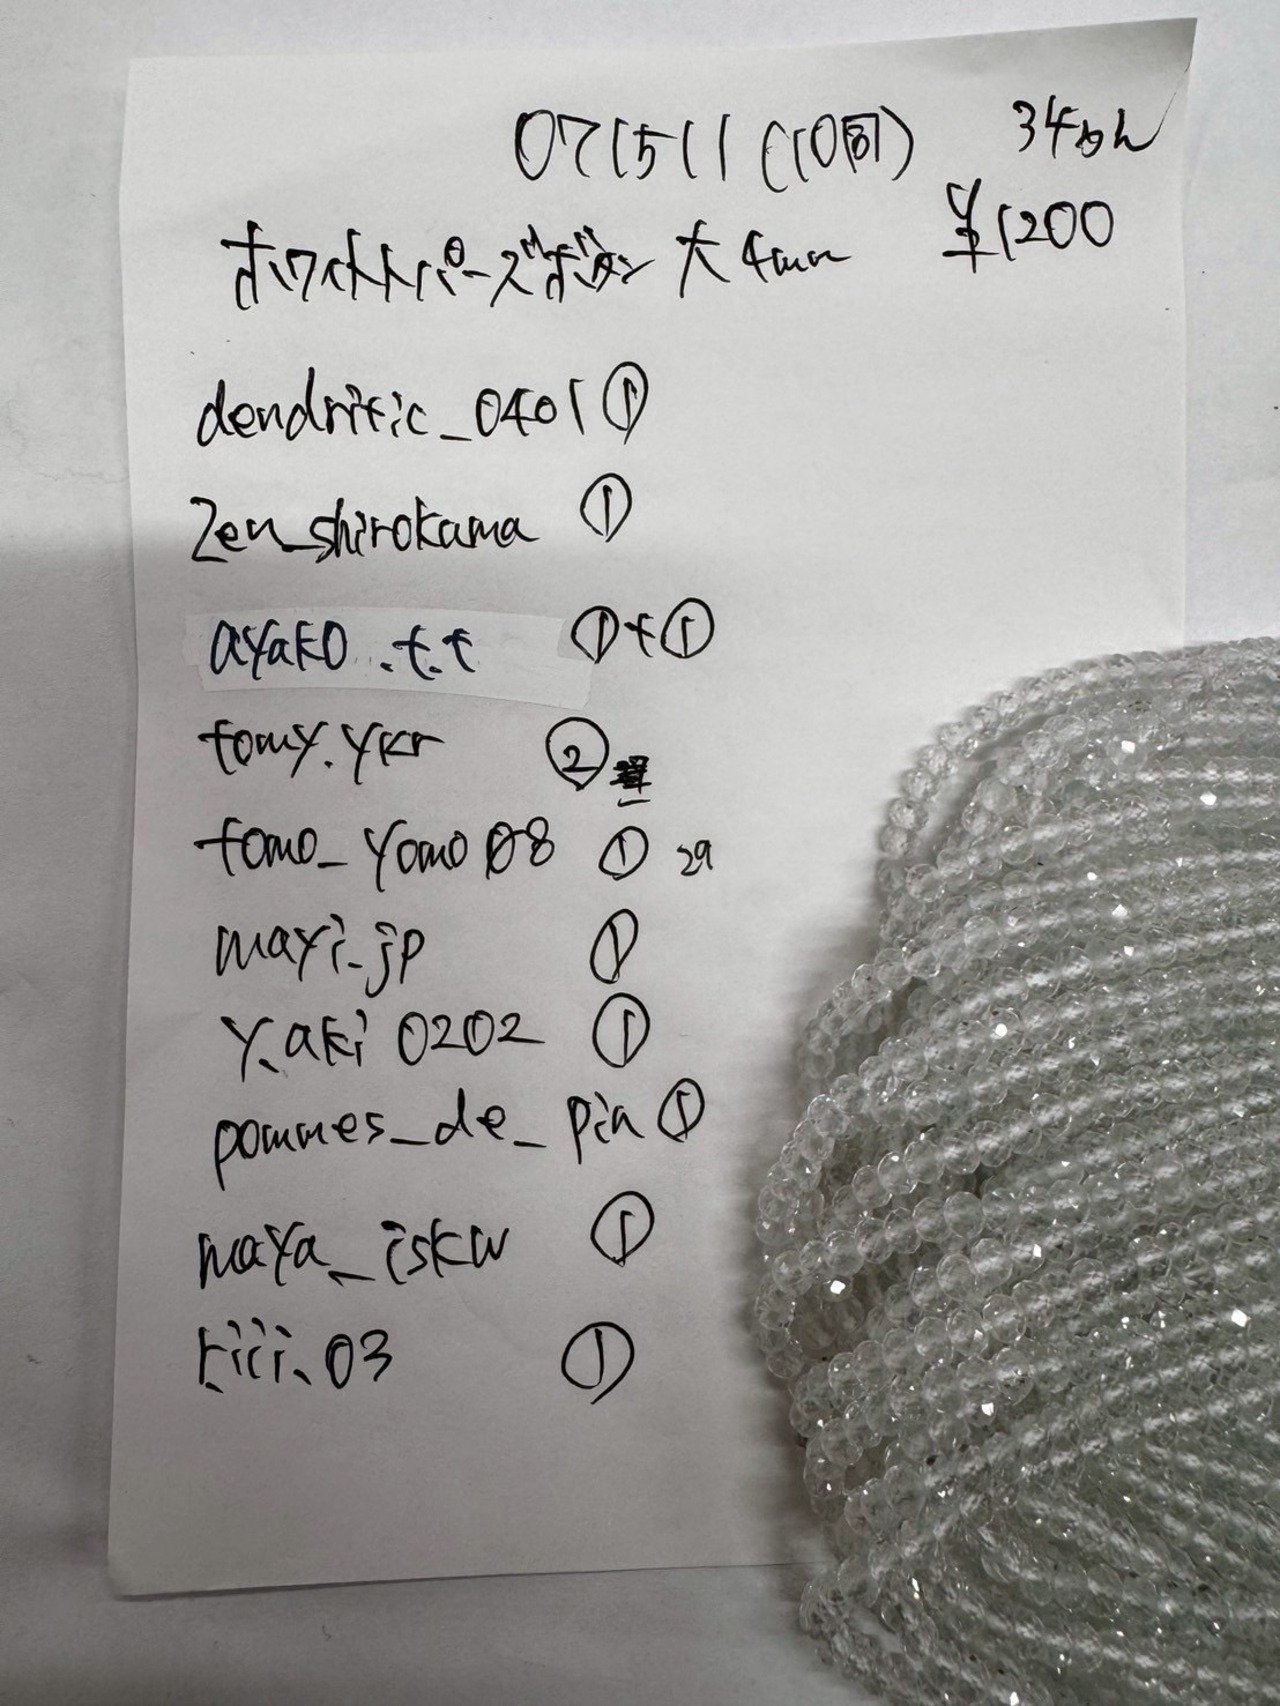 071511 (10回) 34めん
ホワイトトパーズボタン 大 4mm ¥1200
dendritic_0401 ①
zen_shirokama ①
ayako..t.t ①+①
tomy.ykr ②
tomo_yomo08 ① 29
mayi_jp ①
y.aki0202 ①
pommes_de_pin ①
maya_iskw ①
riiii.03 ①